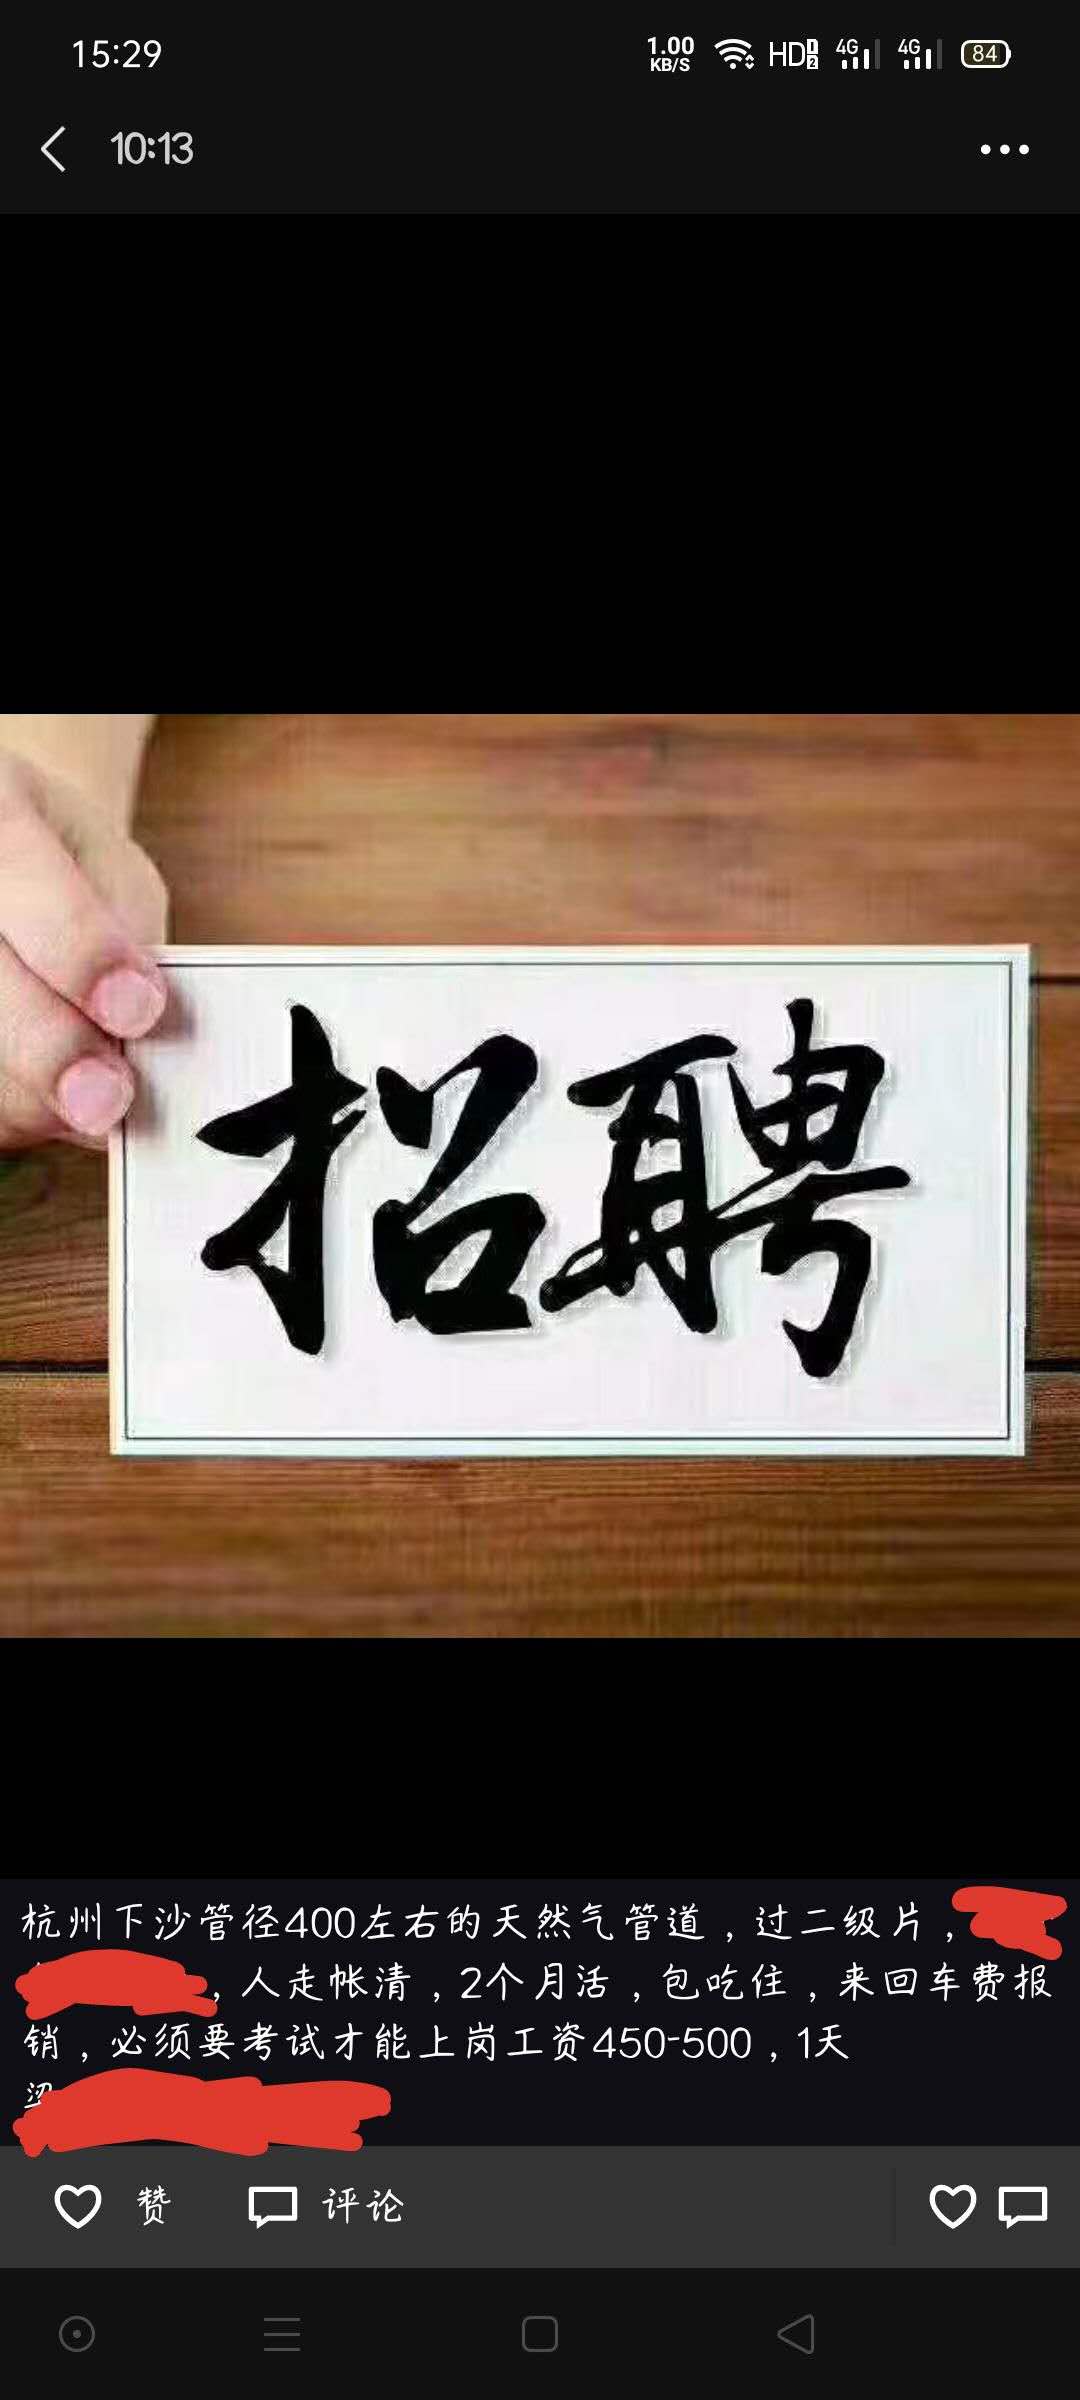 15:29
1.00
KB/S
HD 1
2
4G
4G
84
10:13
招聘
杭州下沙管径400左右的天然气管道，过二级片，
，人走帐清，2个月活，包吃住，来回车费报
销，必须要考试才能上岗工资450-500，1天
赞
评论